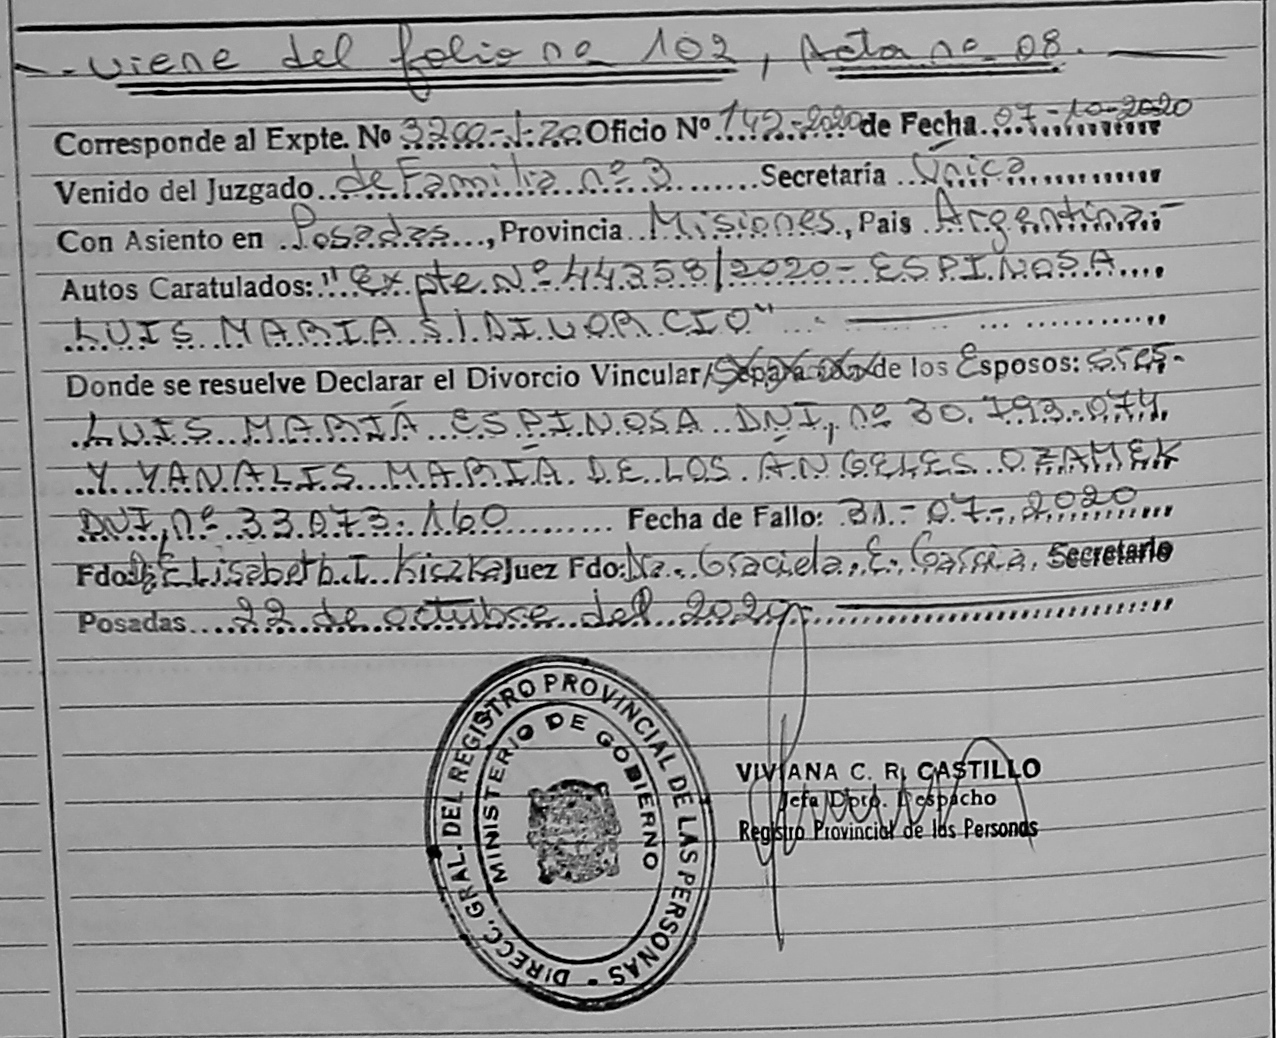 - . viene del folio nº 102, Acta nº 08. -
Corresponde al Expte. Nº 3200-J-20 Oficio Nº 142-2020 de Fecha 07-10-2020
Venido del Juzgado de Familia nº 3 Secretaría Única
Con Asiento en Posadas, Provincia Misiones, Pais Argentina.-
Autos Caratulados: "Expte. Nº 44358/2020 - ESPINOSA
LUIS MARIA S/DIVORCIO"
Donde se resuelve Declarar el Divorcio Vincular/ de los Esposos: Sres.
LUIS MARÍA ESPINOSA DNI, nº 30.793.074.
Y YANALIS MARÍA DE LOS ANGELES OZAMEK
DNI, nº 33.073.160 Fecha de Fallo: 31-07-2020
Fdo: Elisabeth I. Kiszka Juez Fdo: Graciela E. Garcia Secretario
Posadas 22 de octubre del
DIRECC. GRAL. DEL REGISTRO PROVINCIAL DE LAS PERSONAS -
MINISTERIO DE GOBIERNO
VIVIANA C. R. CASTILLO
Jefa Dpto. Despacho
Registro Provincial de las Personas